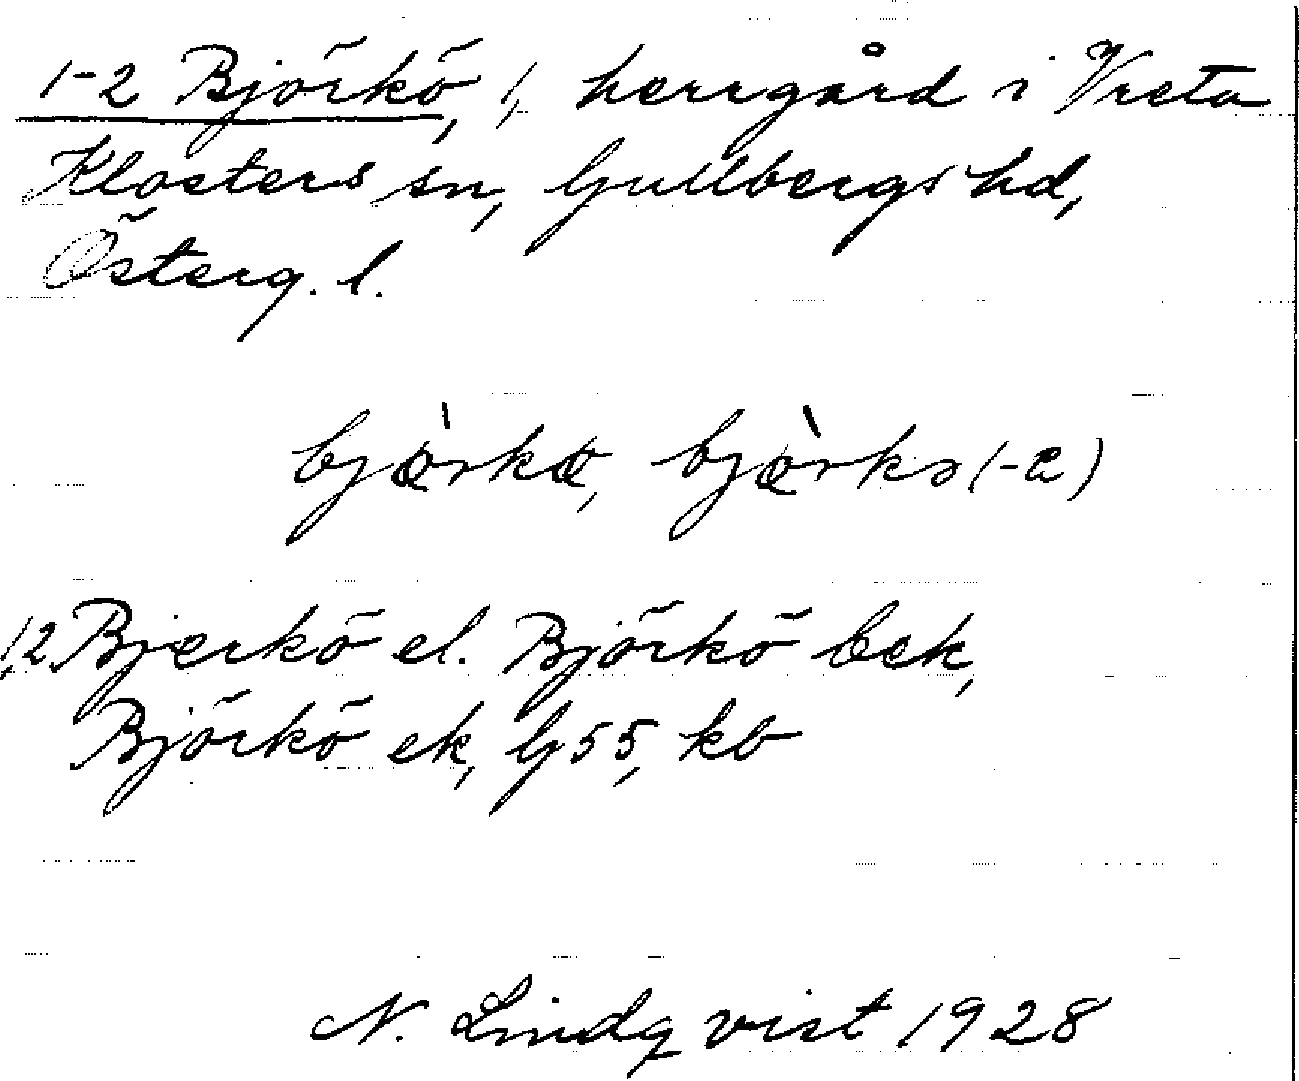 1-2 Björkö, 1, herrgård i Vreta
Klosters sn, Gullbergs hd,
Österg. l.
bjǿrkø, bjǿrkə (-e)
1,2 Bjerkö el. Björkö bek,
Björkö ek, G55, kb
N. Lindqvist 1928